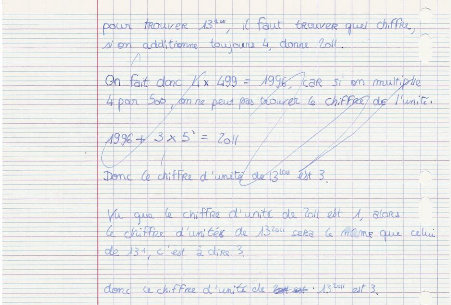 pour trouver 13²⁰¹¹, il faut trouver quel chiffre,
si on additionne toujours 4, donne 2011.
On fait donc 4 x 499 = 1996, car si on multiplie
4 par 500, on ne peut pas trouver le chiffre de l'unité.
1996 + 3 x 5 = 2011
Donc le chiffre d'unité de 13²⁰¹¹ est 3.
Vu que le chiffre d'unité de 2011 est 1, alors
le chiffre d'unités de 13²⁰¹¹ sera le même que celui
de 13¹, c'est à dire 3.
donc ce chiffre d'unité de 13²⁰¹¹ est 3.